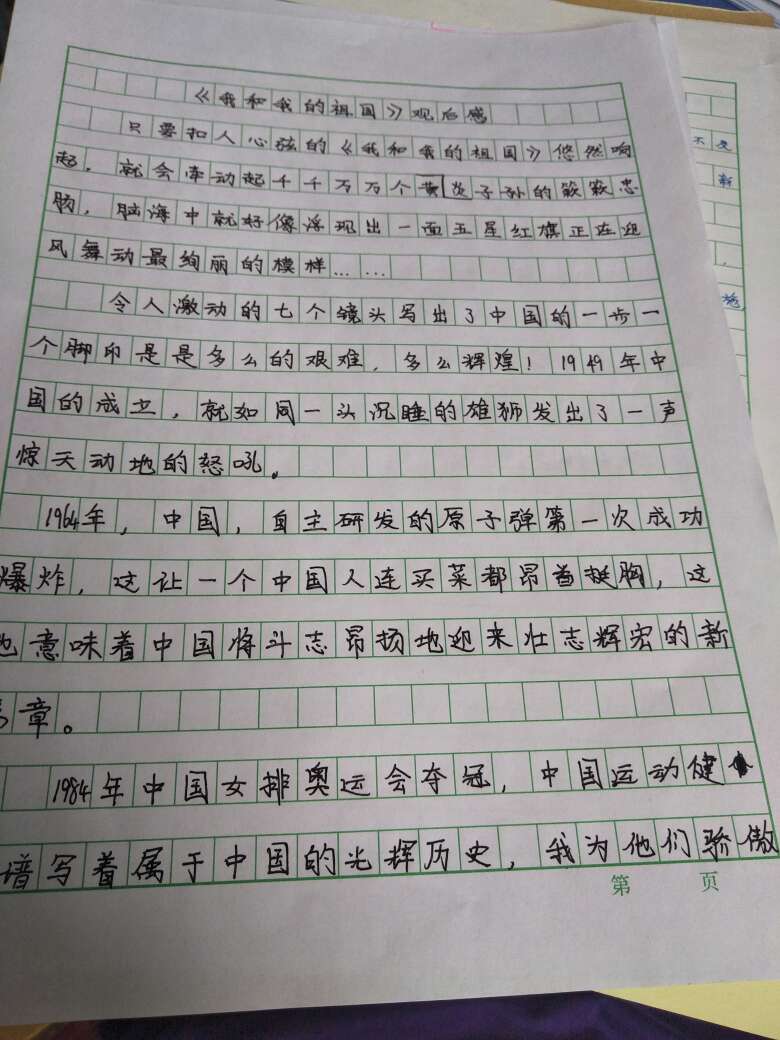 《我和我的祖国》观后感
只要扣人心弦的《我和我的祖国》悠然响
起，就会牵动起千千万万个黄炎子孙的簌簌忠
胸，脑海中就好像浮现出一面五星红旗正在迎
风舞动最绚丽的模样……
令人激动的七个镜头写出了中国的一步一
个脚印是是多么的艰难，多么辉煌！1949年中
国的成立，就如同一头沉睡的雄狮发出了一声
惊天动地的怒吼。
1964年，中国，自主研发的原子弹第一次成功
爆炸，这让一个中国人连买菜都昂首挺胸，这
也意味着中国将斗志昂扬地迎来壮志辉宏的新
章。
1984年中国女排奥运会夺冠，中国运动健
谱写着属于中国的光辉历史，我为他们骄傲
第 页
不
新